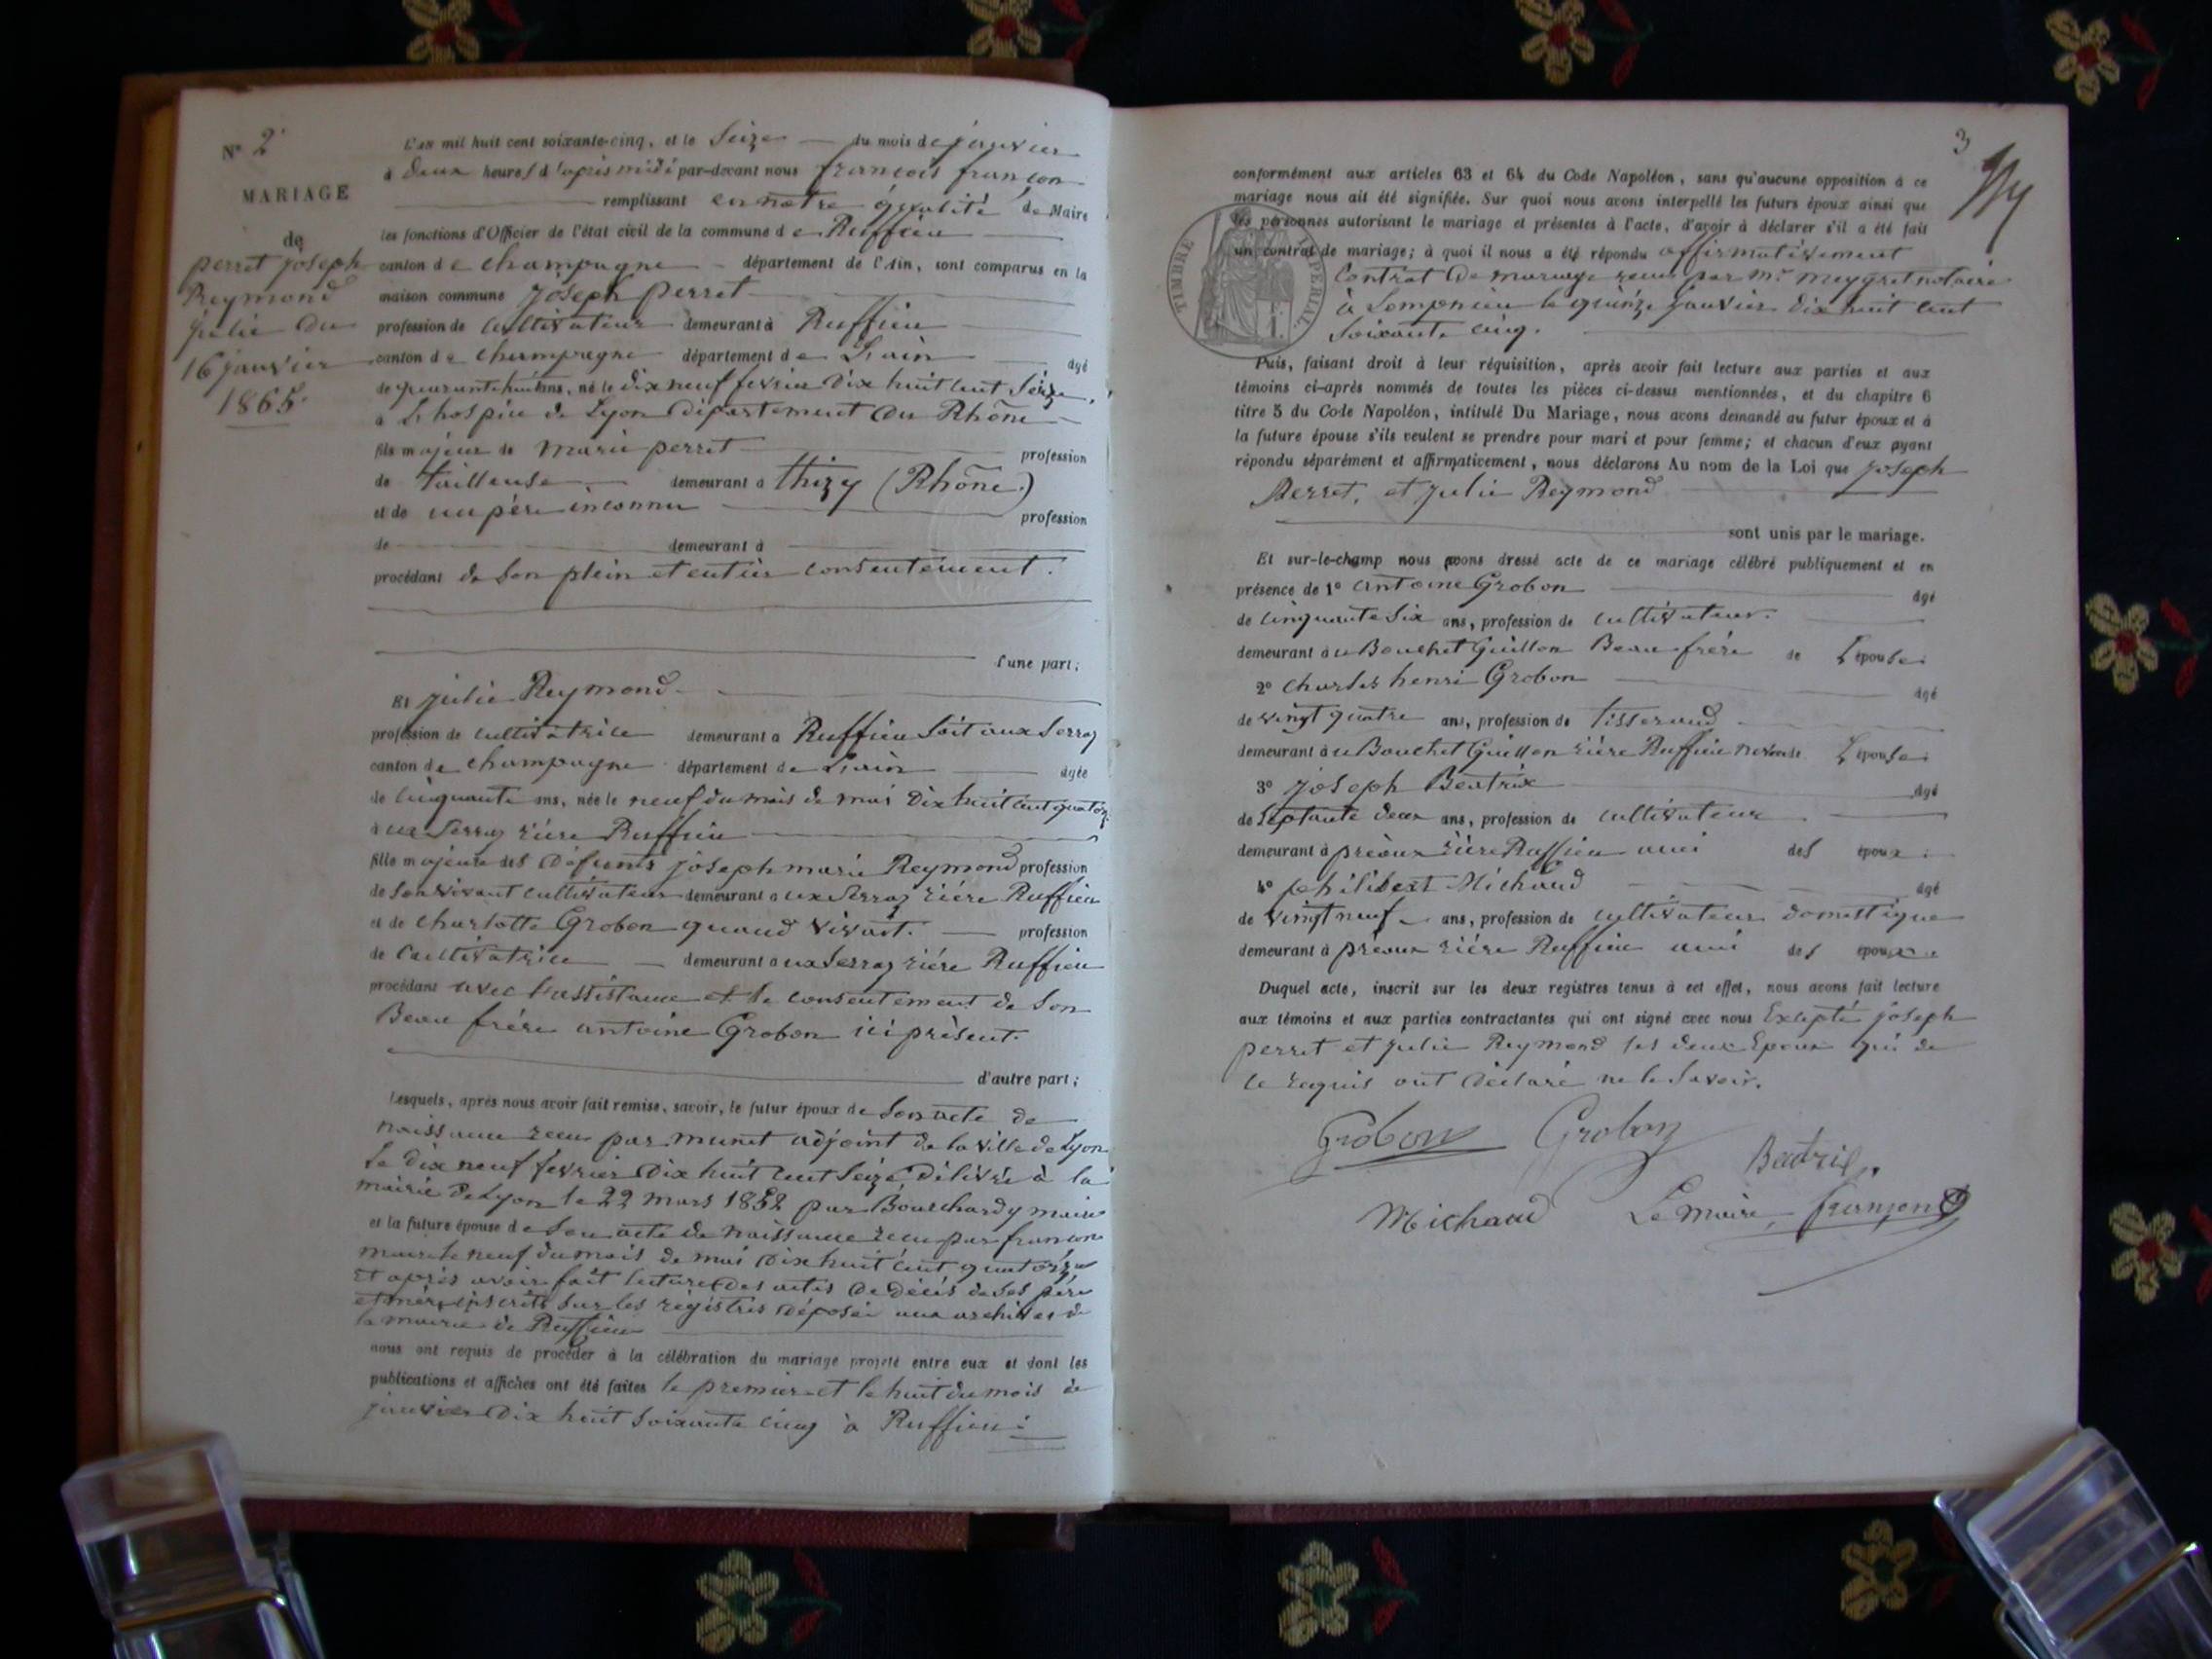 N° 2
MARIAGE
de
perret joseph
Reymond
julie du
16 janvier
1865.
L'an mil huit cent soixante-cinq, et le Seize du mois de janvier
à deux heures d'après midi par-devant nous françois françon
remplissant en notre qualité de Maire
les fonctions d'Officier de l'état civil de la commune de Ruffieu
canton de champagne département de l'Ain, sont comparus en la
maison commune joseph perret
profession de cultivateur demeurant à Ruffieu
canton de champagne département de L'ain âgé
de quarante huit ans, né le dix neuf fevrier dix huit cent seize,
à L'hospice de Lyon département du Rhône
fils majeur de marie perret profession
de tailleuse demeurant à thizy (Rhône)
et de un père inconnu profession
de demeurant à
procédant de son plein et entier consentement.
d'une part;
Et julie Reymond
profession de cultivatrice demeurant à Ruffieu soit aux Serraz
canton de champagne département de L'ain âgée
de cinquante ans, née le neuf du mois de mai dix huit cent quatorze
à ux Serraz rière Ruffieu
fille majeure des défunts joseph marie Reymond profession
de son vivant cultivateur demeurant à ux Serraz rière Ruffieu
et de charlotte Grobon quand vivait. profession
de cultivatrice demeurant à ux Serraz rière Ruffieu
procédant avec l'assistance et le consentement de son
Beau frère antoine Grobon ici présent.
d'autre part;
Lesquels, après nous avoir fait remise, savoir, le futur époux de son acte de
naissance reçu par munet adjoint de la ville de Lyon
Le dix neuf fevrier dix huit cent seize délivré à la
mairie de Lyon le 22 mars 1852 par Bourchardy maire
et la future épouse de son acte de naissance reçu par françon
maire le neuf du mois de mai dix huit cent quatorze
et après avoir fait lecture des actes de décès de ses père
et mère inscrits sur les régistres déposés aux archives de
la mairie de Ruffieu
nous ont requis de procéder à la célébration du mariage projeté entre eux et dont les
publications et affiches ont été faites le premier et le huit du mois de
janvier dix huit soixante cinq à Ruffieu:
3
conformément aux articles 63 et 64 du Code Napoléon, sans qu'aucune opposition à ce
mariage nous ait été signifiée. Sur quoi nous avons interpellé les futurs époux ainsi que
les personnes autorisant le mariage et présentes à l'acte, d'avoir à déclarer s'il a été fait
un contrat de mariage; à quoi il nous a été répondu affirmativement
TIMBRE IMPÉRIAL.
Contrat de mariage reçu par Mr. meygret notaire
à Lompnieu le quinze janvier dix huit cent
soixante cinq.
Puis, faisant droit à leur réquisition, après avoir fait lecture aux parties et aux
témoins ci-après nommés de toutes les pièces ci-dessus mentionnées, et du chapitre 6
titre 5 du Code Napoléon, intitulé Du Mariage, nous avons demandé au futur époux et à
la future épouse s'ils veulent se prendre pour mari et pour femme; et chacun d'eux ayant
répondu séparément et affirmativement, nous déclarons Au nom de la Loi que joseph
Perret, et julie Reymond
sont unis par le mariage.
Et sur-le-champ nous avons dressé acte de ce mariage célébré publiquement et en
présence de 1° antoine Grobon âgé
de cinquante six ans, profession de cultivateur.
demeurant à u Bouchet Guillon Beau frère de L'épouse
2° charles henri Grobon âgé
de vingt quatre ans, profession de tisserand
demeurant à u Bouchet Guillon rière Ruffieu neveu de L'épouse
3° joseph Beatrix âgé
de septante deux ans, profession de cultivateur
demeurant à préoux rière Ruffieu ami des époux
4° philibert Michaud âgé
de vingt neuf ans, profession de cultivateur domestique
demeurant à préoux rière Ruffieu ami des époux
Duquel acte, inscrit sur les deux registres tenus à cet effet, nous avons fait lecture
aux témoins et aux parties contractantes qui ont signé avec nous Excepté joseph
perret et julie Reymond les deux Epoux qui de
ce requis ont déclaré ne le savoir.
Grobon Grobon
Beatrix.
Michaud Le maire, françon